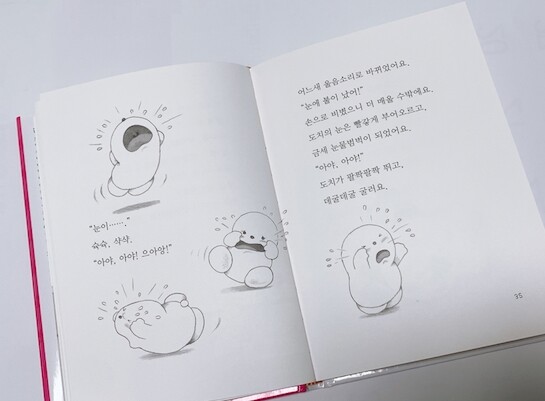 "눈이……."
슥슥, 삭삭.
"아야, 아야! 으아앙!"
어느새 울음소리로 바뀌었어요.
"눈에 불이 났어!"
손으로 비볐으니 더 매울 수밖에요.
도치의 눈은 빨갛게 부어오르고,
금세 눈물범벅이 되었어요.
"아야, 아야!"
도치가 팔짝팔짝 뛰고,
데굴데굴 굴러요.
35